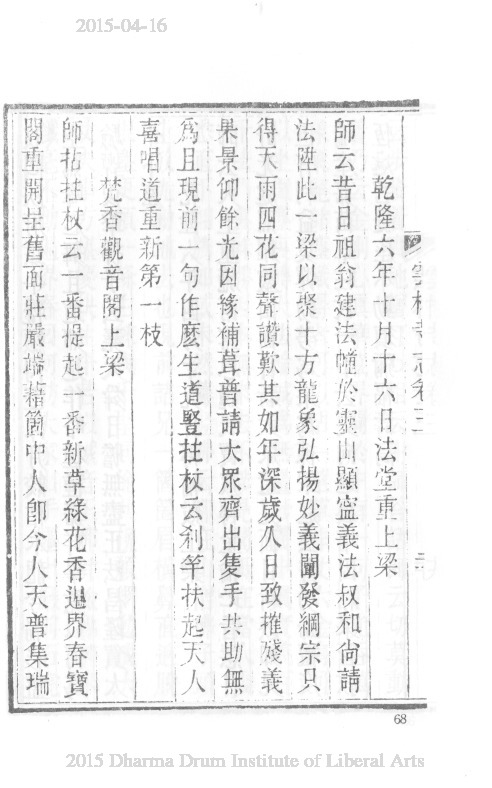 2015-04-16
雲林寺志卷三
乾隆六年十月十六日法堂重上梁
師云昔日祖翁建法幢於靈山顯寍義法叔和尙請
法陞此一梁以聚十方龍象弘揚妙義闡發綱宗只
得天雨四花同聲讚歎其如年深歲久日致摧殘義
果景仰餘光因緣補葺普請大眾齊出隻手共助無
爲且現前一句作麼生道豎拄杖云刹竿扶起天人
喜唱道重新第一枝
梵香觀音閣上梁
師拈拄杖云一番提起一番新草綠花香週界春寶
閣重開呈舊面莊嚴端藉箇中人卽今人天普集瑞
68
2015 Dharma Drum Institute of Liberal Arts